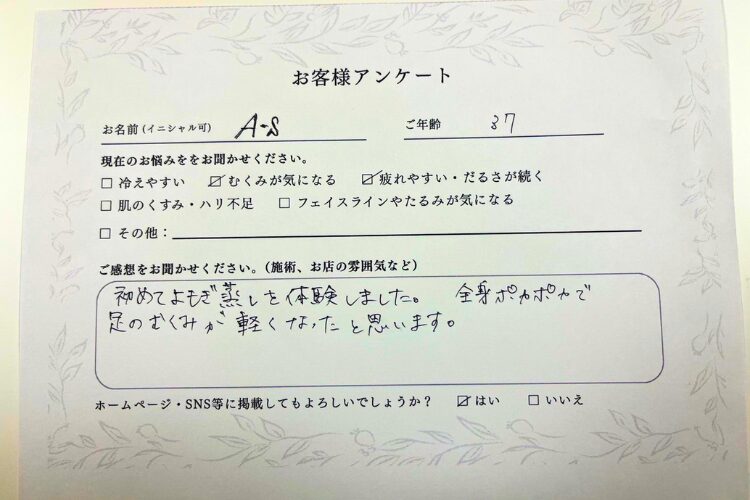 お客様アンケート
お名前(イニシャル可) A-S ご年齢 37
現在のお悩みををお聞かせください。
□ 冷えやすい ☑ むくみが気になる ☑ 疲れやすい・だるさが続く
□ 肌のくすみ・ハリ不足 □ フェイスラインやたるみが気になる
□ その他:
ご感想をお聞かせください。(施術、お店の雰囲気など)
初めてよもぎ蒸しを体験しました。 全身ポカポカで
足のむくみが軽くなったと思います。
ホームページ・SNS等に掲載してもよろしいでしょうか? ☑ はい □ いいえ